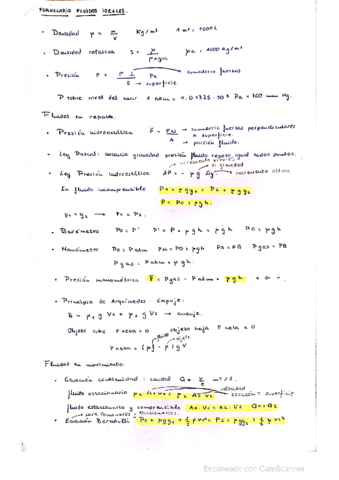 FORMULARIO FLUIDOS IDEALES.
• Densidad ρ = m/V Kg/m³ 1 m³ = 1000 L
• Densidad relativa ρa = 1000 Kg/m³
• Presión P = F⊥/S Pa sumatorio fuerzas
S → superficie
P sobre nivel del mar 1 atm = 1.01325 · 10⁵ Pa = 760 mm Hg.
Fluidos en reposo.
• Presión hidrostática sumatorio fuerzas perpendiculares
a superficie.
porción fluido.
• Ley Pascal: ausencia gravedad presión fluido reposo, igual todos puntos.
• Ley Presión hidrostática ΔP = - ρ g Δy → incremento altura
En fluido incompresible P1 + ρgy1 = P2 + ρgy2
P = P0 + ρgh.
y1 = y2 → P1 = P2.
• Barómetro P0 = P' P' = P + ρgh P0 = ρgh
• Manómetro PA = PB Pgas = PB
Pgas = Patm + ρgh.
• Presión manométrica = Pgas - Patm = ρgh + o -.
• Principio de Arquímedes: Empuje.
→ empuje.
Objeto sube F neta > 0 objeto baja F neta < 0
Fluidos en movimiento.
• Ecuación continuidad: caudal m³/s.
velocidad
fluido estacionario sección = superficie
fluido estacionario y compresible A1 · V1 = A2 · V2 Q1 = Q2
• Ecuación Bernoulli P1 + ρgy1 + ½ρv1² = P2 + ρgy2 + ½ρv2²
Escaneado con CamScanner